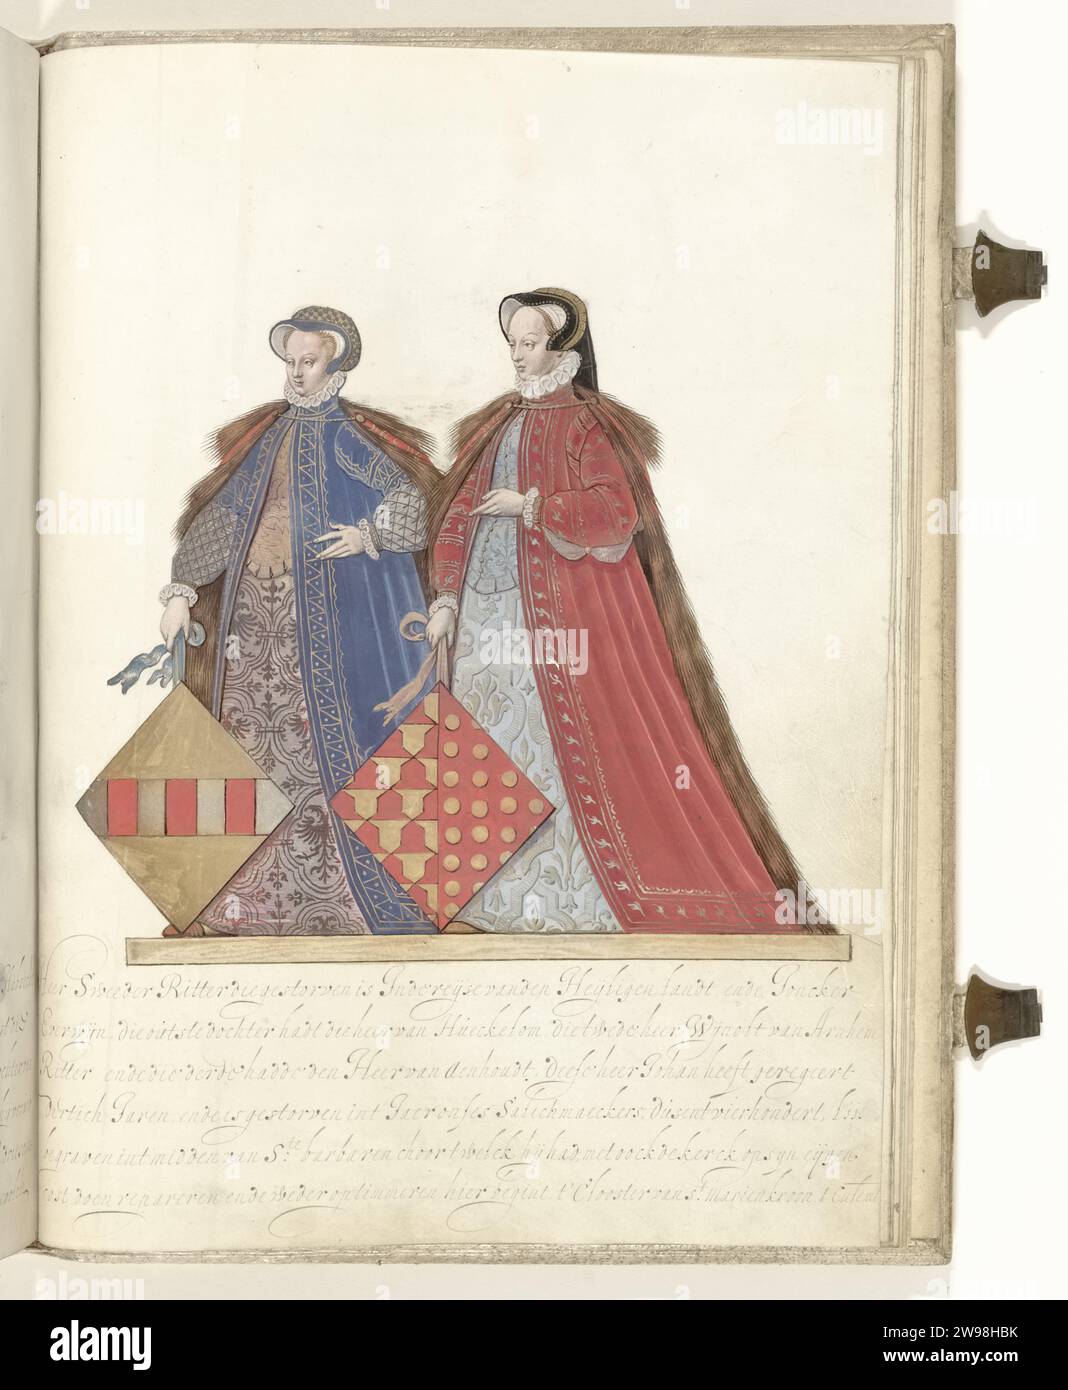 Heer Sweeder Ritter die gestorven is Inde reÿse vanden Heÿligen landt, ende Joncker
Everwijn, die outste dochter hadt die heer van Haeckelom, die twede heer Wÿnolt van Arnhem
Ritter, ende die derde hadde den Heer van Aenhoudt, Dese heer Johan heeft geregeert
dertich Jaren, ende is gestorven int Jaer onses Salichmaeckers, duisent vierhondert,
begraven int midden van Ste barbaren choor twelck hÿ had, met oock de kerck op sijn eÿgen
cost doen repareren ende weder optimmeren hier begint t'Clooster van St Marienkroon
alamy
alamy
Image ID: 2W98HBK
www.alamy.com